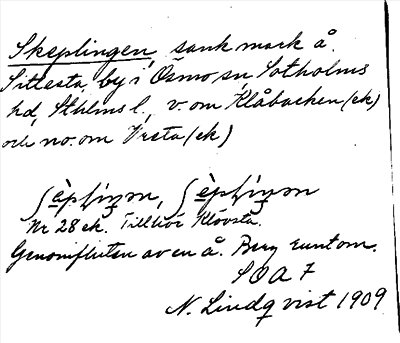 Skeplingen, sank mark å
Sittesta by i Ösmo sn Sotholms
hd, Sthlms l, v om Klåbacken (ek)
och no. om Vreta (ek)
ʃèpliŋən, ʃèpliŋən
Nr 28 ek. Tillhör Klövsta.
Genomfluten av en å. Berg runtom.
SOA 7
N. Lindqvist 1909